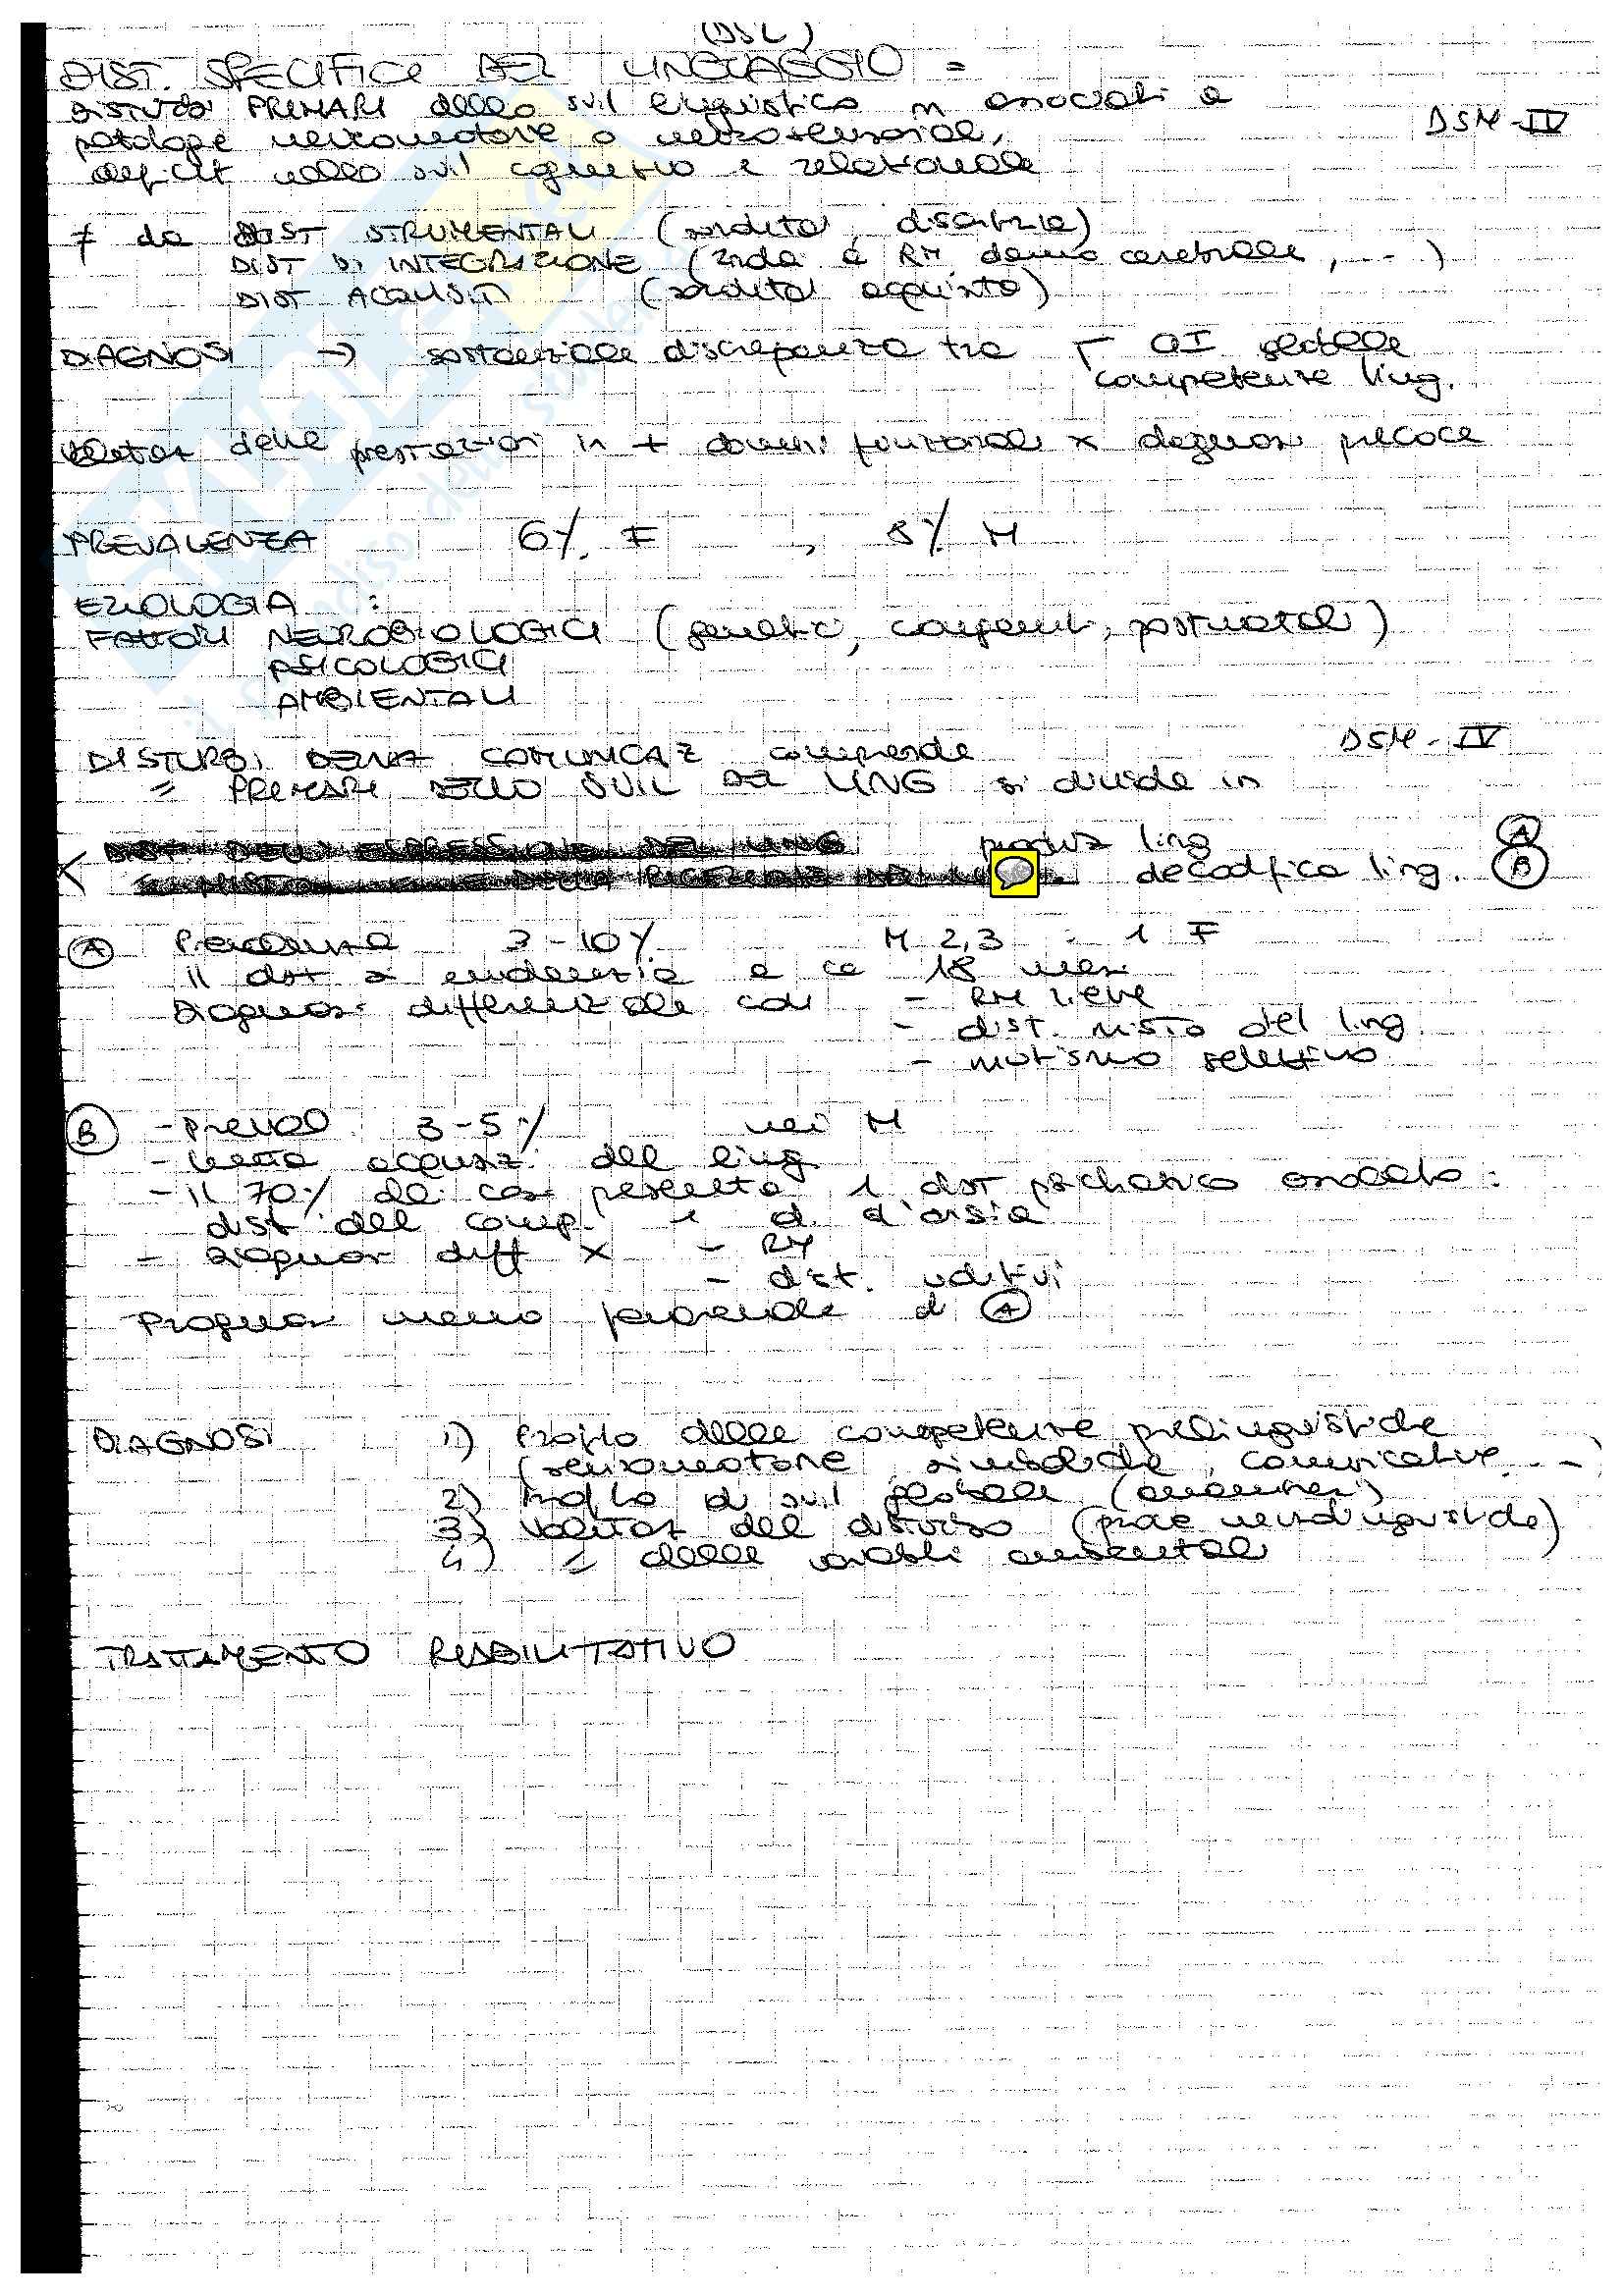 (DSL)
DIST. SPECIFICI DEL LINGUAGGIO =
DISTURBI PRIMARI dello svil linguistico n associati a
patologie neuromotorie o neurosensoriali, DSM-IV
deficit nello svil cognitivo e relazionale
≠ da DIST STRUMENTALI (sordità, disartria)
DIST DI INTEGRAZIONE (2nda a RM danno cerebrale, --)
DIST ACQUISITI (sordità acquisita)
DIAGNOSI → sostanziale discrepanza tra QI globale
competenze ling.
Valutaz delle prestazioni in + domini funzionali x diagnosi precoce
PREVALENZA 6% F , 8% M
EZIOLOGIA :
FATTORI NEUROBIOLOGICI (genetici, congeniti, postnatali)
PSICOLOGICI
AMBIENTALI
DISTURBI DELLA COMUNICAZ comprende DSM-IV
= PRIMARI DELLO SVIL DEL LING si divide in
produz ling A
decodifica ling. B
A Prevalenza 3-10% M 2,3 : 1 F
il dist si evidenzia a ca 18 mesi
Diagnosi differenziale con - RM lieve
- dist. misto del ling.
- mutismo selettivo
B - Preval 3-5% nei M
- lenta acquisiz. del ling
- il 70% dei casi presenta 1 dist psichiatrico associato :
dist del comp. e d. d'ansia
- Diagnosi diff x - RM
- dist. uditivi
Prognosi meno favorevole di A
DIAGNOSI 1) Profilo delle competenze prelinguistiche
(sensomotorie, simboliche, comunicative, --)
2) Profilo di svil globale (anamnesi)
3) Valutaz del disturbo (prove neurolinguistiche)
4) = delle variabili ambientali
TRATTAMENTO RIABILITATIVO